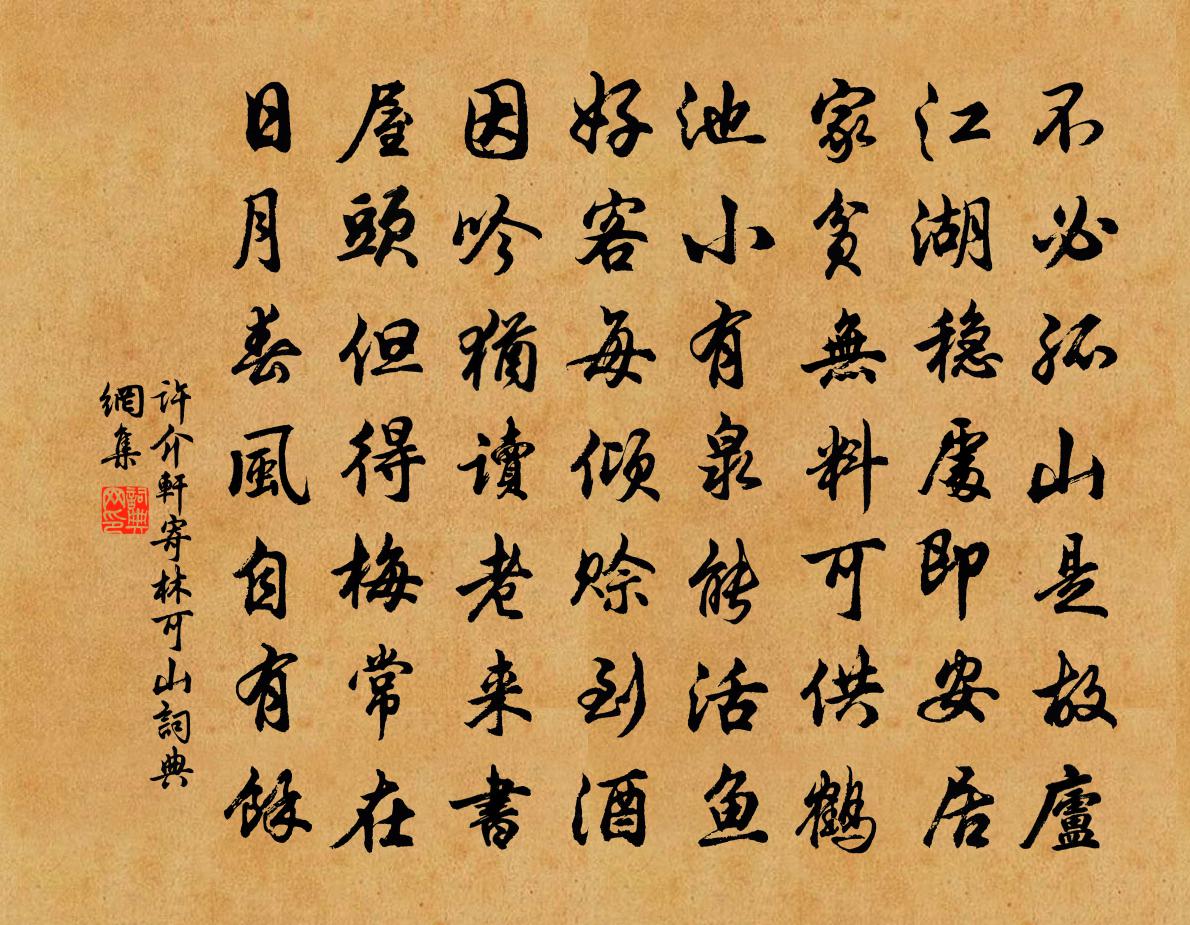 不必孤山是故廬
江湖穏處即安居
家貧無料可供鶴
池小有泉能活鱼
好客每傾賒到酒
因吟猶讀老来書
屋頭但得梅常在
日月春風自有餘
許介軒寄林可山詞典
網集
詞典
网印